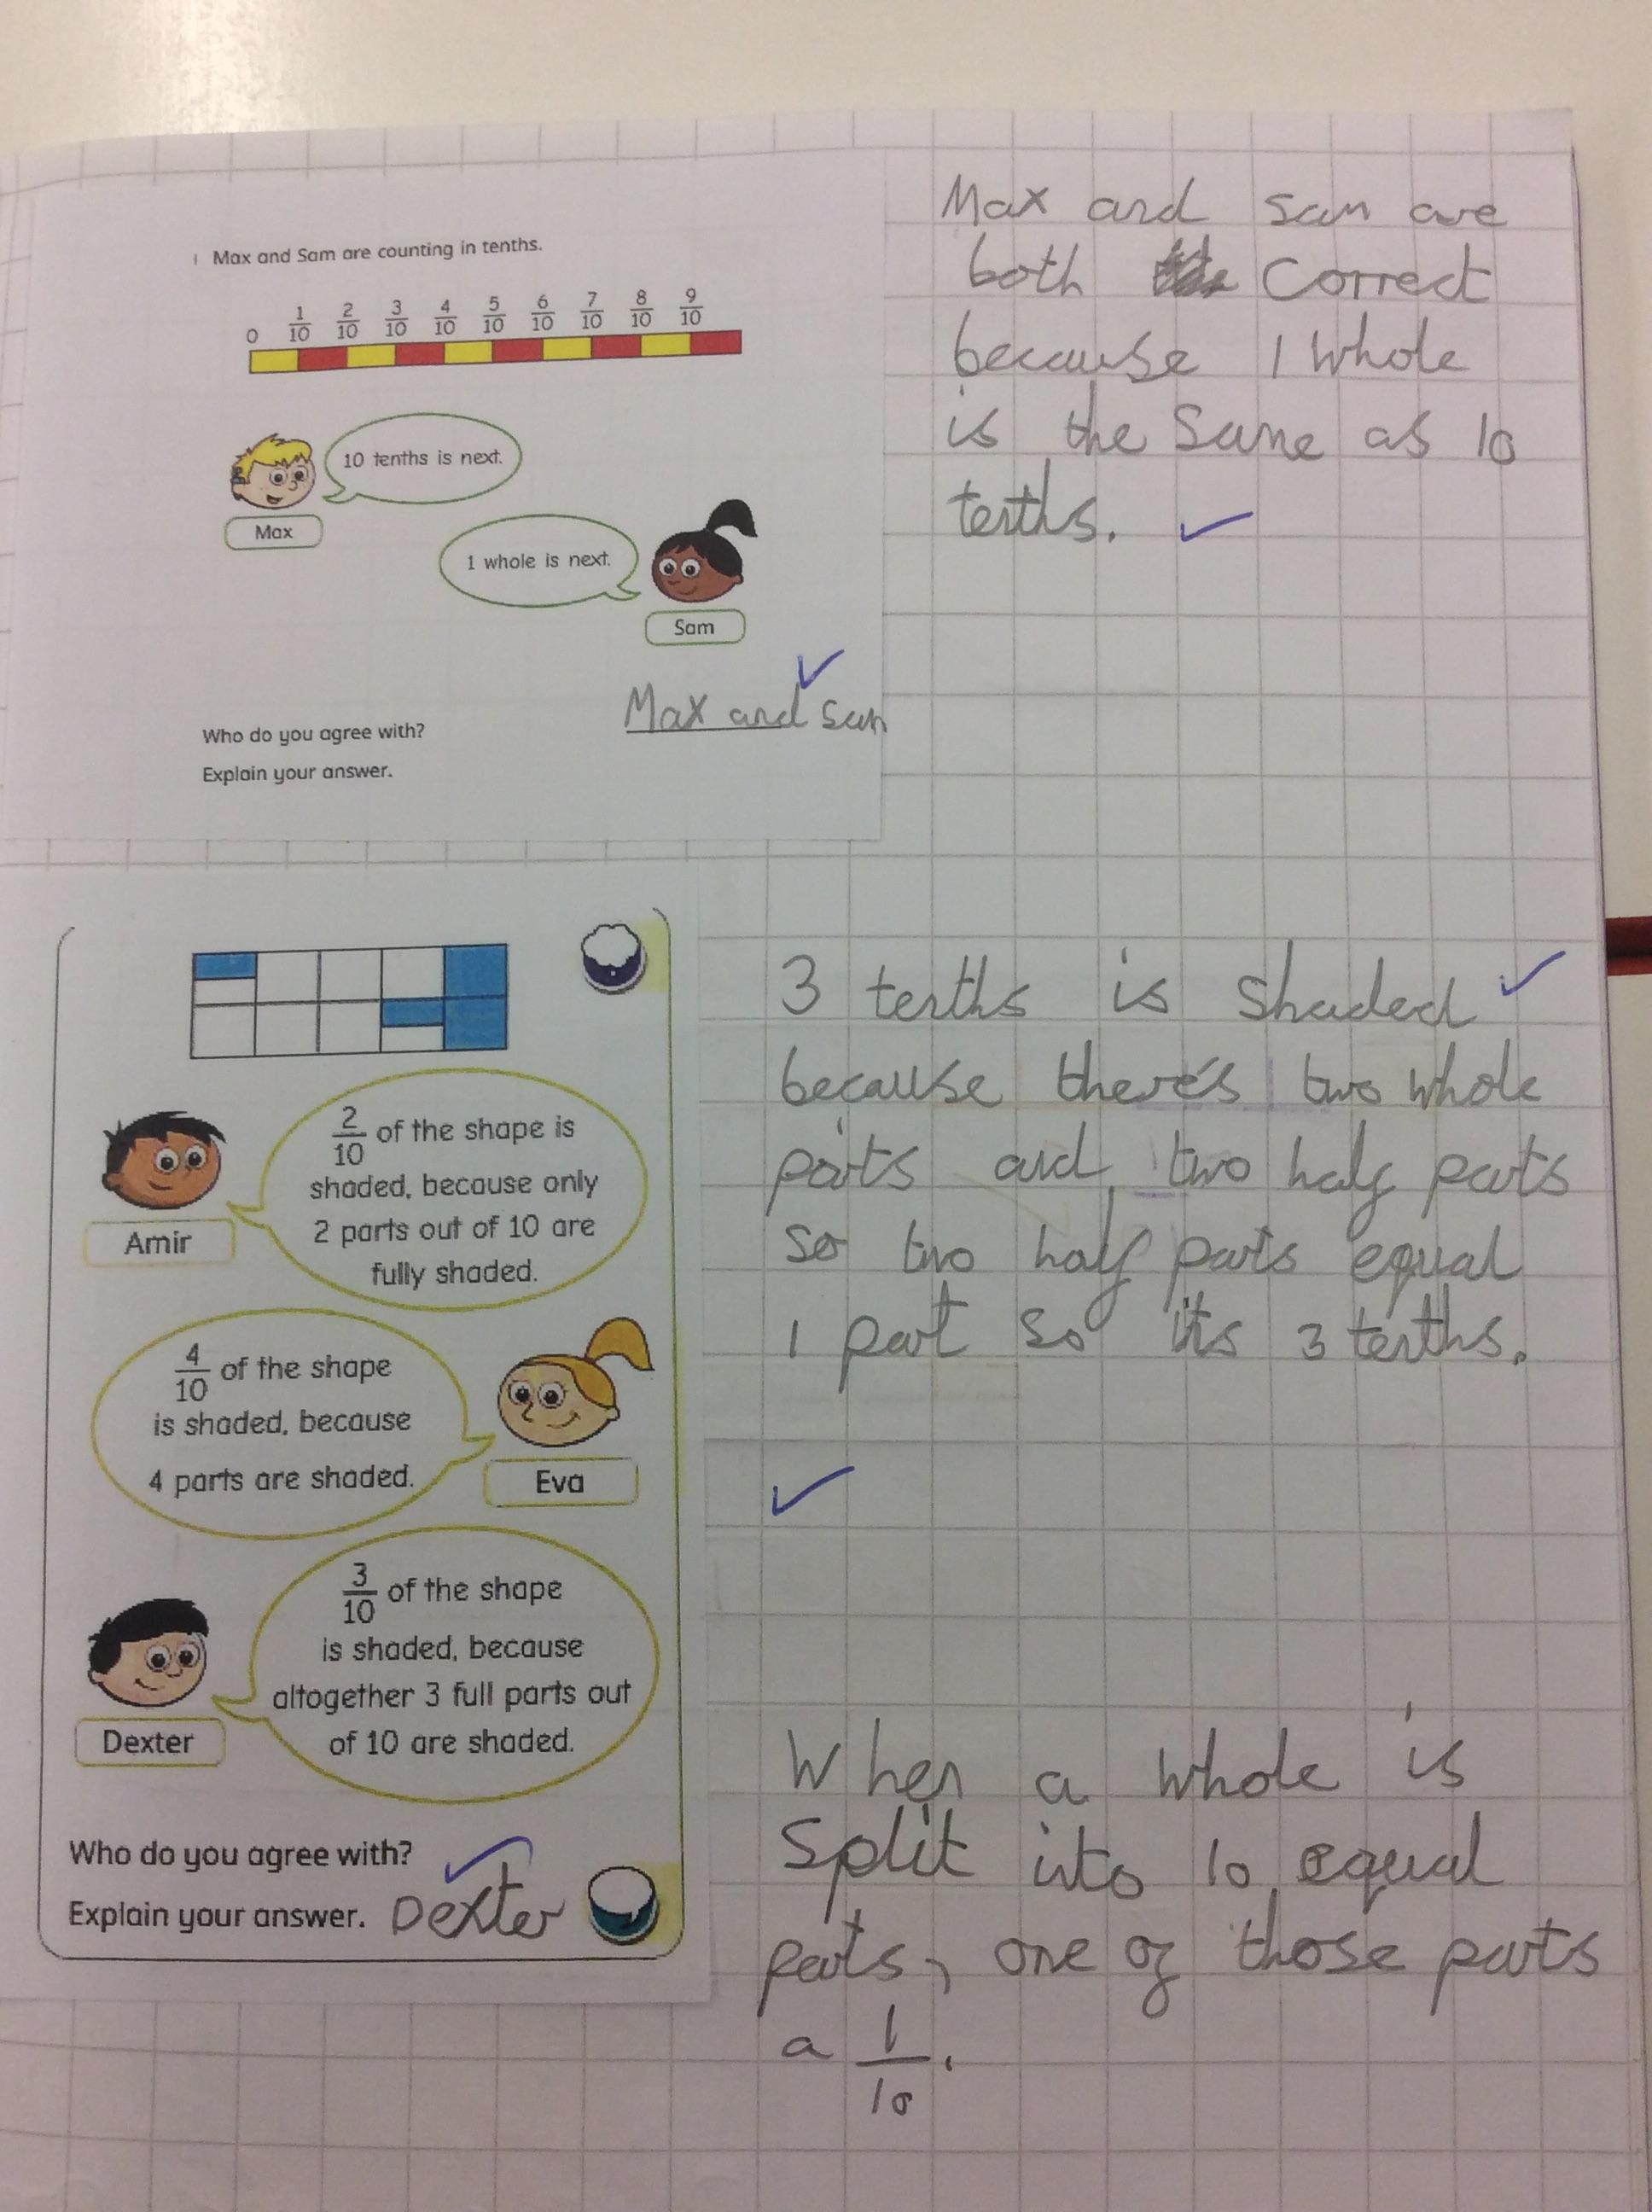 1 Max and Sam are counting in tenths.
0 1/10 2/10 3/10 4/10 5/10 6/10 7/10 8/10 9/10
10 tenths is next.
Max
1 whole is next.
Sam
Max and Sam
Who do you agree with?
Explain your answer.
Max and Sam are
both correct
because 1 whole
is the same as 10
tenths.
2/10 of the shape is
shaded, because only
2 parts out of 10 are
fully shaded.
Amir
4/10 of the shape
is shaded, because
4 parts are shaded.
Eva
3/10 of the shape
is shaded, because
altogether 3 full parts out
of 10 are shaded.
Dexter
Who do you agree with?
Explain your answer. Dexter
3 tenths is shaded
because there's two whole
parts and two half parts
so two half parts equal
1 part so its 3 tenths.
When a whole is
split into 10 equal
parts, one of those parts
a 1/10.